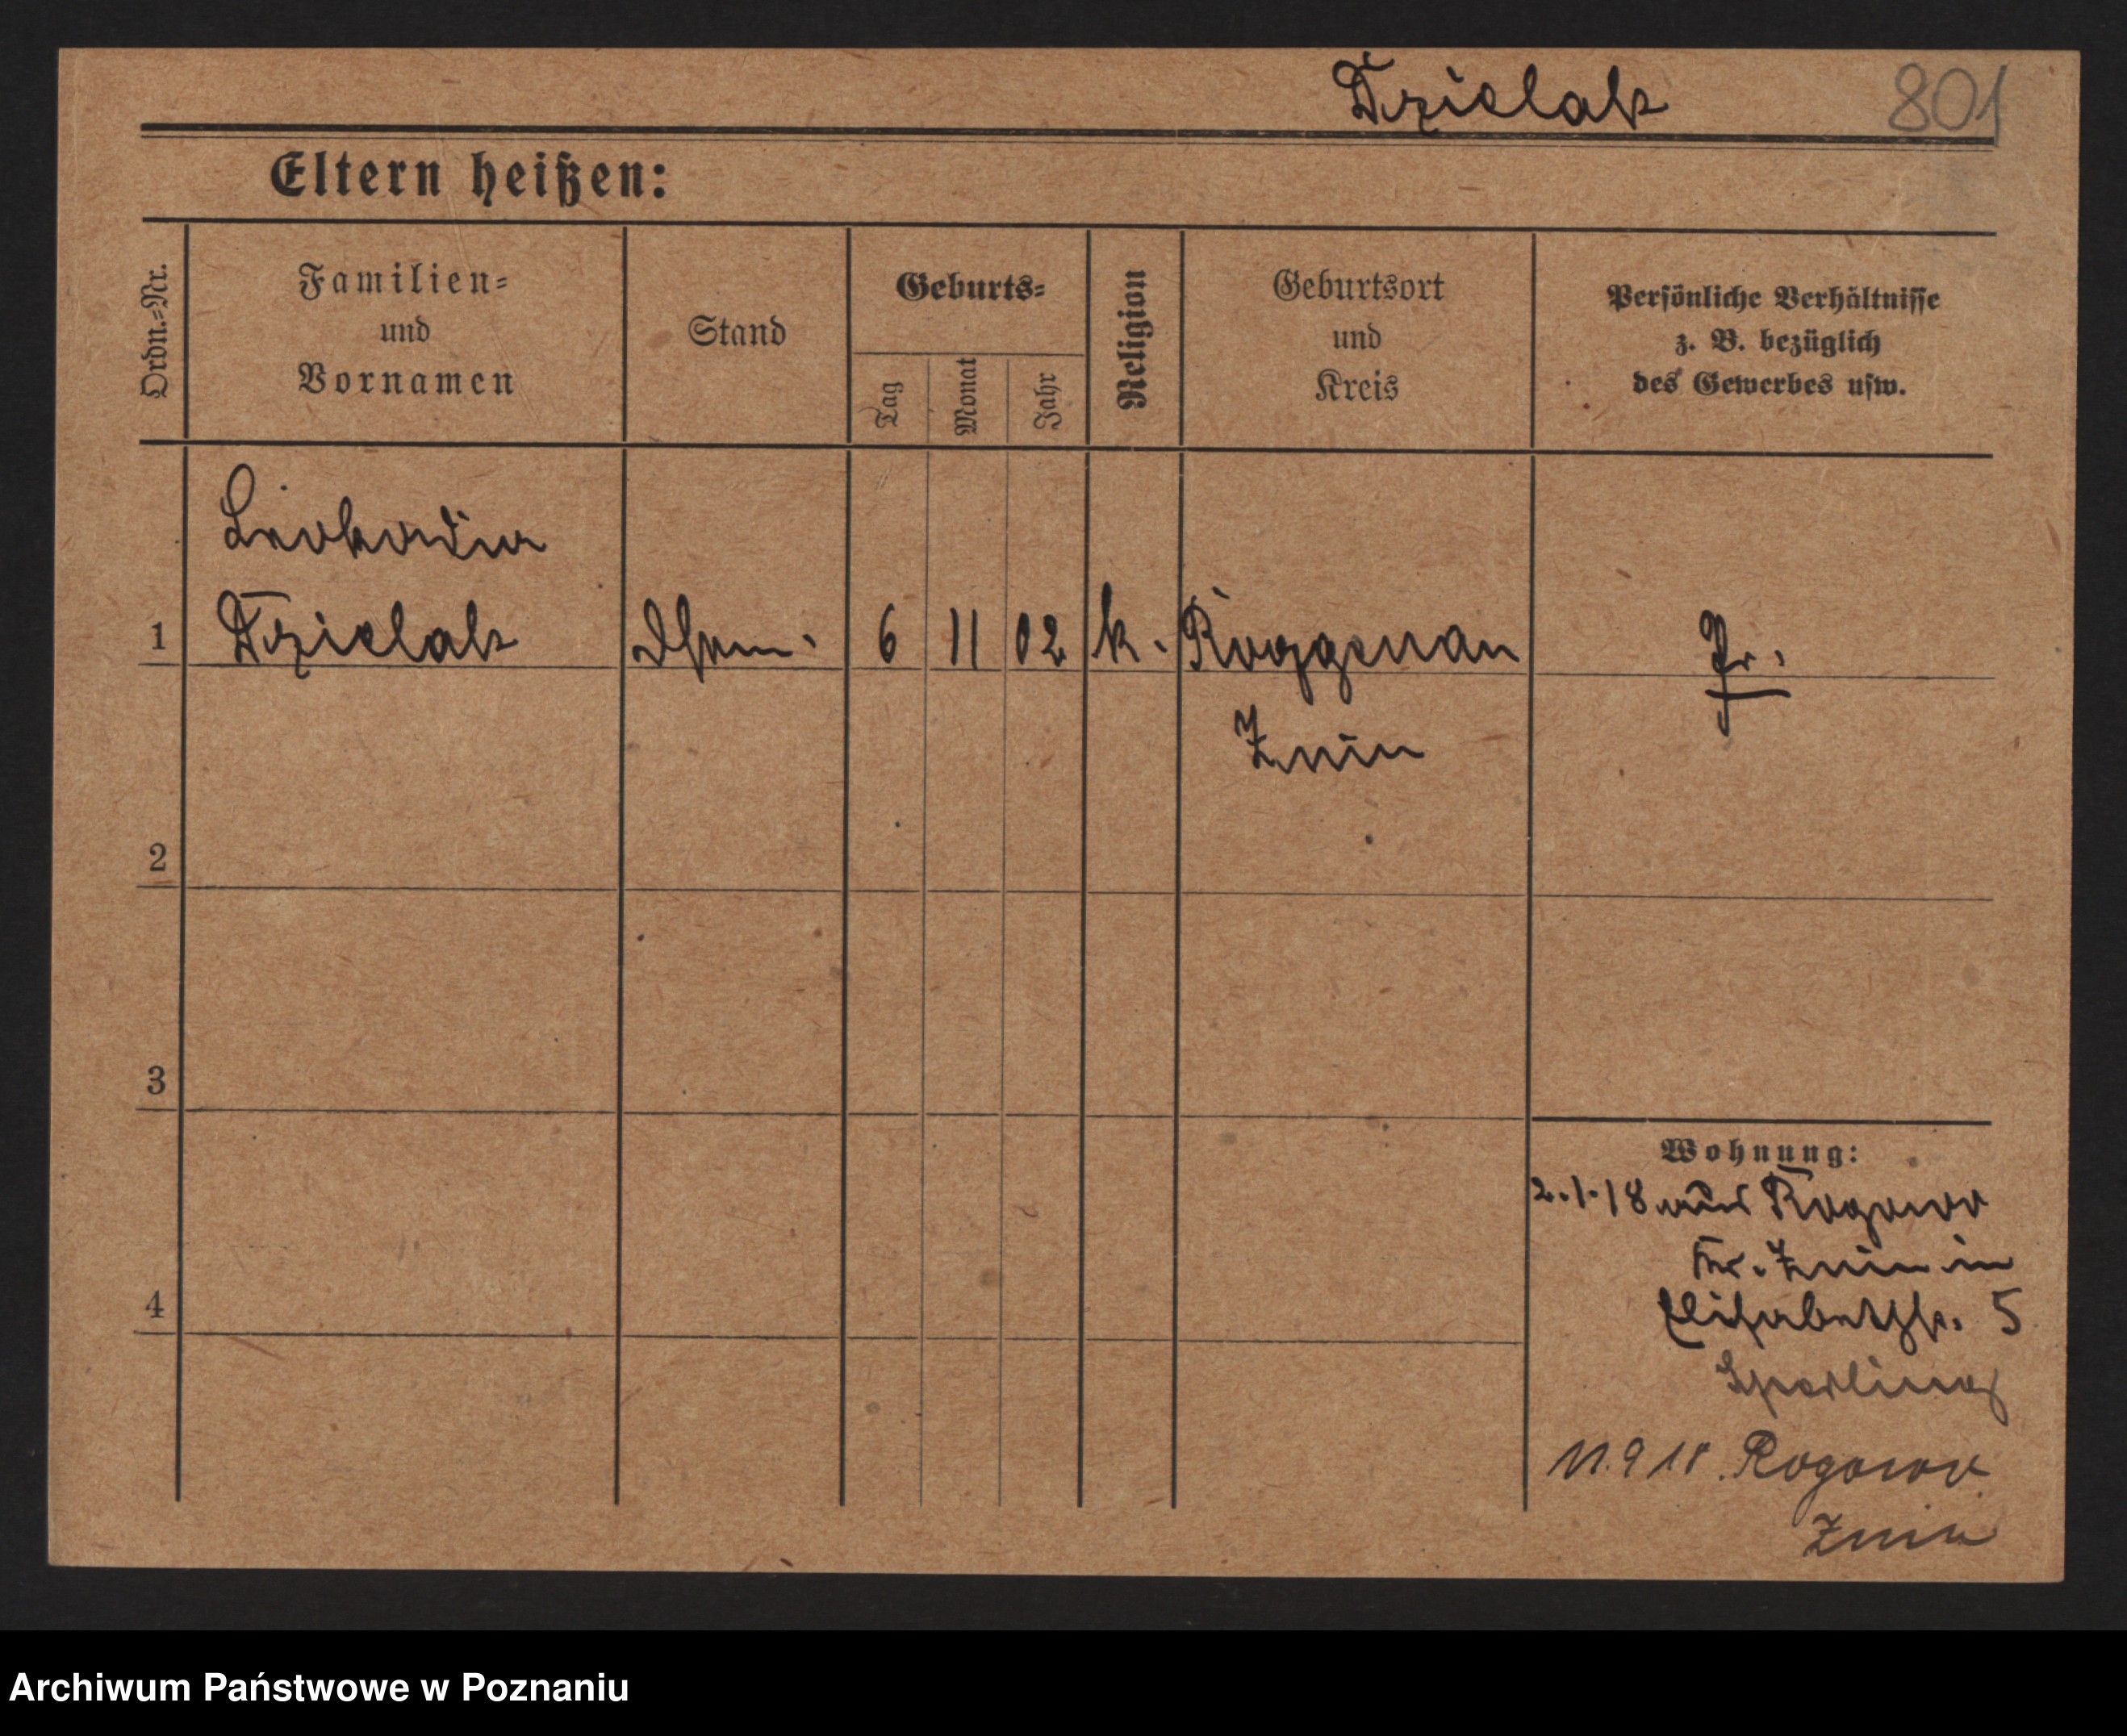 Dzielak 801
Eltern heißen:
Ordn.=Nr.
Familien=
und
Vornamen
Stand
Geburts=
Tag
Monat
Jahr
Religion
Geburtsort
und
Kreis
Persönliche Verhältnisse
z. B. bezüglich
des Gewerbes usw.
Leokadia
1 Dzielak 6 11 02 k. Roggenau Pr.
Znin
2
3
Wohnung:
2.1.18 aus Rogowo
Kr. Znin in
4 Elisabethstr. 5
Sperling
11.9 18. Rogowo
Znin
Archiwum Państwowe w Poznaniu